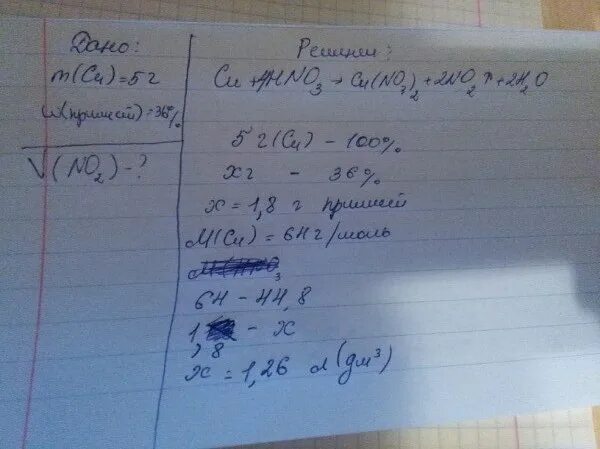 Дано:
m(Cu)=5г
w(примесей)=36%
V(NO₂)-?
Решение:
Cu+4HNO₃→Cu(NO₃)₂+2NO₂↑+2H₂O
5г(Cu) - 100%
xг - 36%
x=1,8 г примесей
M(Cu)=64г/моль
64 - 44,8
1,8 - x
x=1,26 л(дм³)